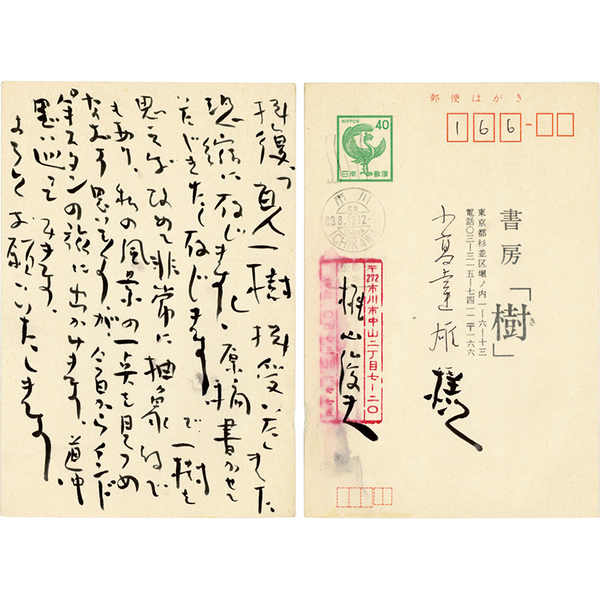 拝復 一樹 拝受いたしました
恐縮に存じます。原稿書かせて
いただきたく存じます。で 一樹を
思えば 非常に抽象的で
もあり、私の風景の一点を見つめ
なおそう思います。が、今日からインド、
パキスタンの旅に出かけます。道中
思い巡してみます。
よろしくお願いいたします。
郵便はがき
166-
NIPPON 40
日本郵便
市川
ICHIKAWA
書房「樹」
き
東京都杉並区堀ノ内一-六-十三
電話〇三-三一五-七四一一 〒一六六
達雄 様
〒272市川市中山二丁目七-二〇
山俊夫